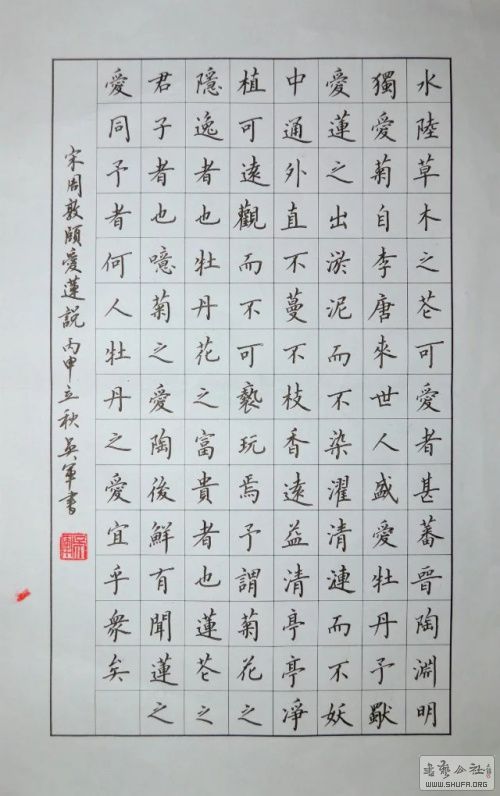 水陸草木之芲可愛者甚蕃晉陶淵明
獨愛菊自李唐來世人盛愛牡丹予獸
愛蓮之出淤泥而不染濯清漣而不妖
中通外直不蔓不枝香遠益清亭亭淨
植可遠觀而不可褻玩焉予謂菊花之
隱逸者也牡丹花之富貴者也蓮芲之
君子者也噫菊之愛陶後鮮有聞蓮之
愛同予者何人牡丹之愛宜乎衆矣
宋周敦頤愛蓮説丙申立秋吳軍書
书艺公社
WWW.SHUFA.ORG